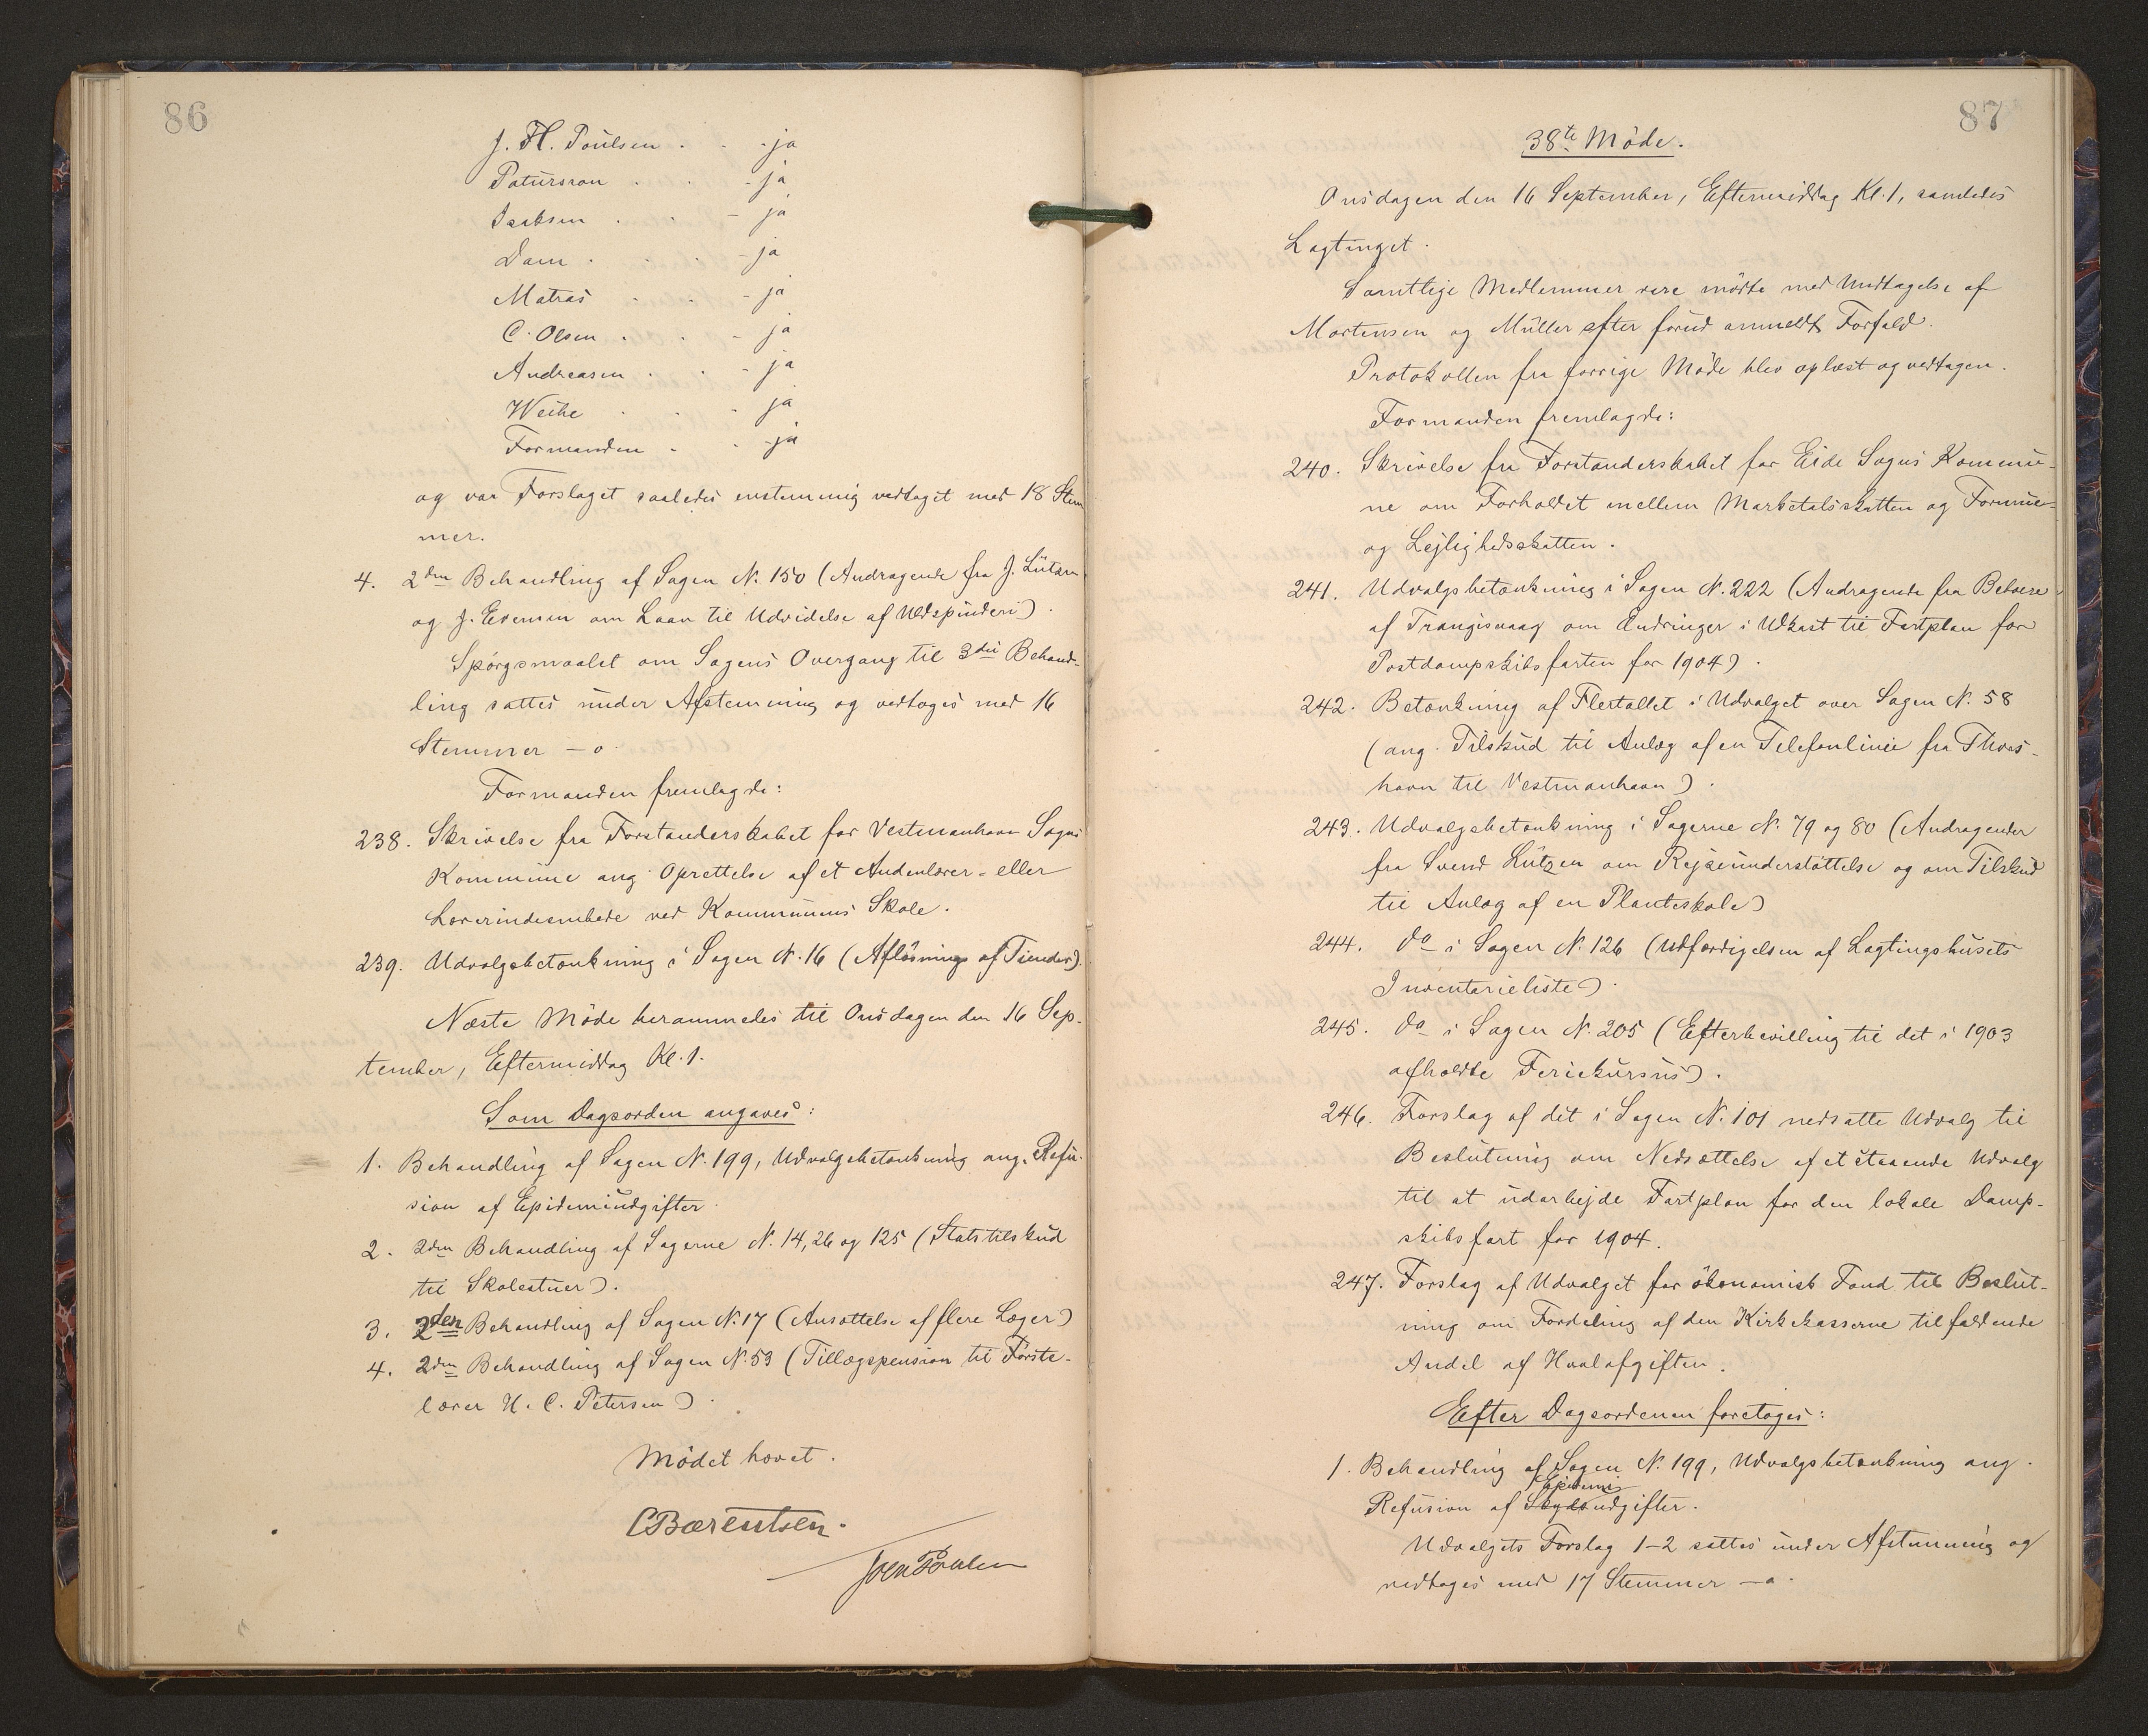 86
J. H. Poulsen . . - ja
Patursson . . - ja
Isaksen . . - ja
Dam . . . - ja
Matras . . - ja
C. Olsen . . - ja
Andreasen . . - ja
Weihe . . . ja
Formanden . . - ja
og var Forslaget saaledes enstemmig vedtaget med 18 Stem
mer.
4. 2den Behandling af Sagen N. 150 (Andragende fra J. Lützen
og J. Evensen om Laan til Udvidelse af Uldspinderi).
Spörgsmaalet om Sagens Overgang til 3die Behand-
ling sattes under Afstemning og vedtoges med 16
Stemmer - o.
Formanden fremlagde:
238. Skrivelse fra Forstanderskabet for Vestmanhavn Sogns
Kommune ang. Oprettelse af et Andenlærer- eller
Lærerindeembede ved Kommunens Skole.
239. Udvalgsbetænkning i Sagen N. 16 (Aflösning af Tiender).
Næste Möde berammedes til Onsdagen den 16 Sep-
tember, Eftermiddag Kl. 1.
Som Dagsorden angaves:
1. Behandling af Sagen N. 199, Udvalgsbetænkning ang. Refu-
sion af Epidemiudgifter.
2. 2den Behandling af Sagerne N. 14, 26 og 125 (Statstilskud
til Skolestuer).
3. 2den Behandling af Sagen N. 17 (Ansættelse af flere Læger)
4. 2den Behandling af Sagen N. 53 (Tillægspension til Förste-
lærer H. C. Petersen).
Mödet hævet.
C Bærentsen.
Joen Poulsen
87
38te Möde.
Onsdagen den 16 September, Eftermiddag Kl. 1, samledes
Lagtinget.
Samtlige Medlemmer vare mödte med Undtagelse af
Mortensen og Müller efter forud anmeldt Forfald.
Protokollen fra forrige Möde blev oplæst og vedtagen.
Formanden fremlagde:
240. Skrivelse fra Forstanderskabet for Eide Sogns Kommu-
ne om Forholdet mellem Marketalsskatten og Formue-
og Lejlighedsskatten.
241. Udvalgsbetænkning i Sagen N. 222 (Andragende fra Beboere
af Trangisvaag om Ændringer i Udkast til Fartplan for
Postdampskibsfarten for 1904).
242. Betænkning af Flertallet i Udvalget over Sagen N. 58
(ang. Tilskud til Anlæg af en Telefonlinie fra Thors-
havn til Vestmanhavn).
243. Udvalgsbetænkning i Sagerne N. 79 og 80 (Andragender
fra Svend Lützen om Rejseunderstöttelse og om Tilskud
til Anlæg af en Planteskole)
244. do i Sagen N. 126 (Udfærdigelsen af Lagtingshusets
Inventarieliste).
245. do i Sagen N. 205 (Efterbevilling til det i 1903
afholdte Feriekursus).
246. Forslag af det i Sagen N. 101 nedsatte Udvalg til
Beslutning om Nedsættelse af et staaende Udvalg
til at udarbejde Fartplan for den lokale Damp-
skibsfart for 1904.
247. Forslag af Udvalget for ökonomisk Fond til Beslut-
ning om Fordeling af den Kirkekasserne tilfaldende
Andel af Hvalafgiften.
Efter Dagsordenen foretoges:
1. Behandling af Sagen N. 199, Udvalgsbetænkning ang.
Epidemi
Refusion af Skydsudgifter.
Udvalgets Forslag 1-2 sattes under Afstemning og
vedtoges med 17 Stemmer - o.